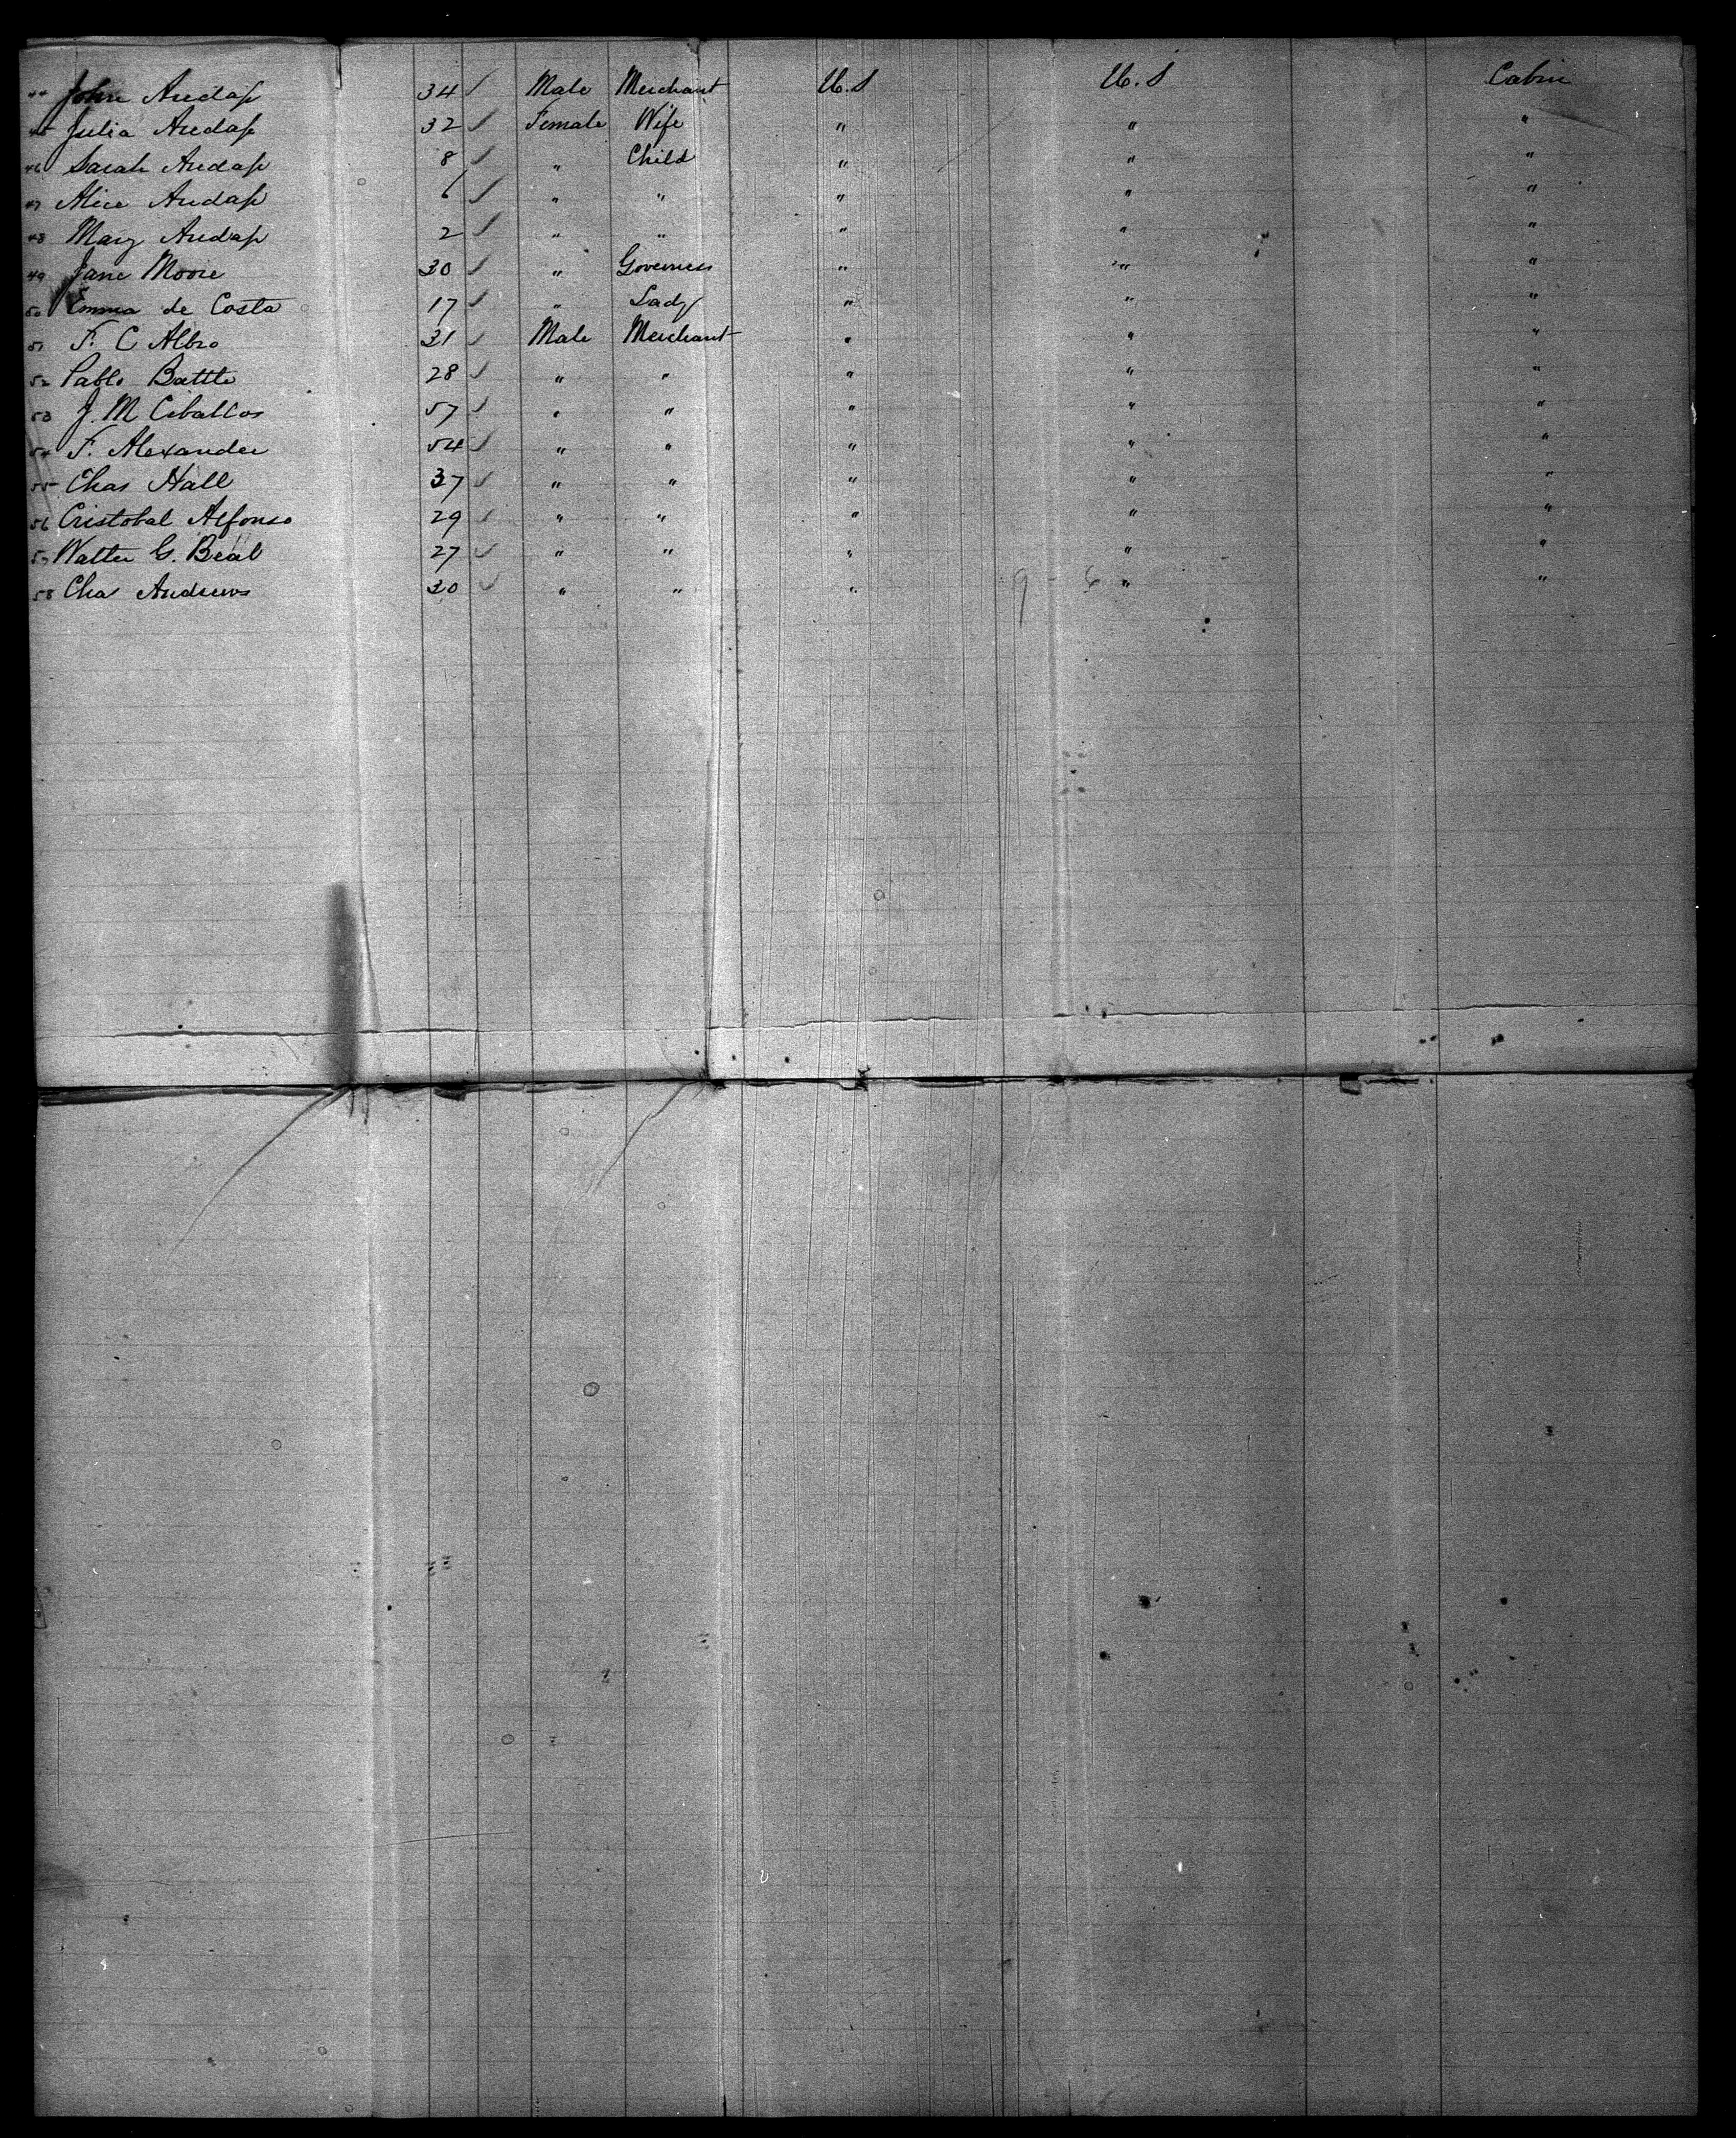 44 John Andass 34 Male Merchant U.S U.S Cabin
45 Julia Andass 32 Female Wife " " "
46 Sarah Andass 8 " Child " " "
47 Alice Andass 6 " " " " "
48 Mary Andass 2 " " " " "
49 Jane Moore 30 " Governess " " "
50 Emma de Costa 17 " Lady " " "
51 F. C Albro 31 Male Merchant " " "
52 Pablo Battle 28 " " " " "
53 J. M Ceballos 57 " " " " "
54 F. Alexander 54 " " " " "
55 Chas Hall 37 " " " " "
56 Cristobal Alfonso 29 " " " " "
57 Walter G. Beal 27 " " " " "
58 Cha Andrews 30 " " " " "